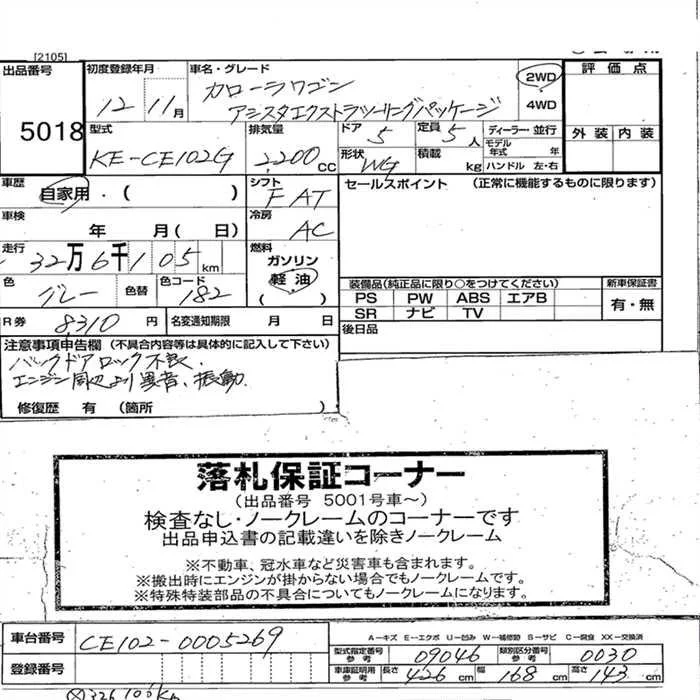 [2105]
出品番号
5018
初度登録年月
12年11月
車名・グレード
カローラワゴン
アシスタエクストラツーリングパッケージ
2WD
4WD
評価点
外装 内装
型式
KE-CE102G
排気量
2,200cc
ドア 5
定員 5人
ディーラー・並行
モデル年式 年
形状 WG
積載 kg
ハンドル 左・右
車歴
自家用・( )
シフト
FAT
セールスポイント (正常に機能するものに限ります)
車検
年 月( 日)
冷房
AC
走行
32万6千105km
燃料
ガソリン
軽油
( )
色
グレー
色替
色コード
182
装備品(純正品に限り○をつけてください)
PS PW ABS エアB
SR ナビ TV
新車保証書
有・無
R券 8,310円
名変通知期限 月 日
後日品
注意事項申告欄 (不具合内容等は具体的に記入して下さい)
バックドアロック不良.
エンジン周辺より異音、振動.
修復歴 有 (箇所 )
落札保証コーナー
(出品番号 5001号車～)
検査なし・ノークレームのコーナーです
出品申込書の記載違いを除きノークレーム
※不動車、冠水車など災害車も含まれます。
※搬出時にエンジンが掛からない場合でもノークレームです。
※特殊特装部品の不具合についてもノークレームになります。
車台番号 CE102-0005269
A－キズ E－エクボ U－凹み W－補修跡 S－サビ C－腐食 XX－交換済
型式指定番号 参考 09046
類別区分番号 参考 0030
登録番号
車庫証明用 参考 長さ 426cm 幅 168cm 高さ 143cm
326,100km